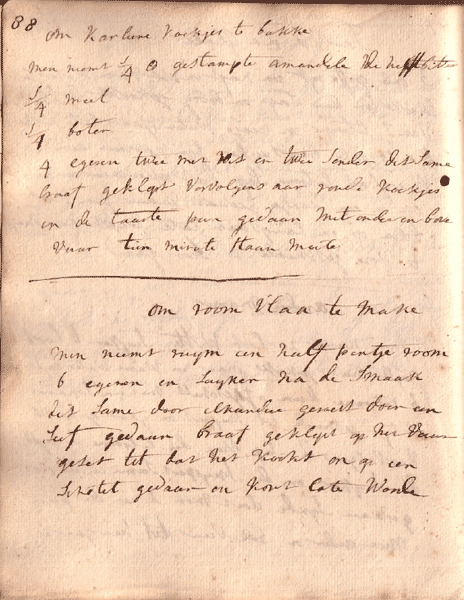 88
om Karlune Koekjes te bakke
men nemt 1/4 gestampte amandele de helft bitter
1/4 meel
1/4 boter
4 egeren twee met wit en twee sonder dit same
braaf geklopt vervolgens aar ronde koekjes
in de taarte pan gedaan met onder en bove
vuur tien minute staan moete
om room vlaa te make
men neemt ruym een half pintje room
6 egeren en suyker na de smaak
dit same door elkander geroert door een
seef gedaan braaf geklopt op het vuur
geset tot dat het kookt en op een
schotel gedaan en kout late worde